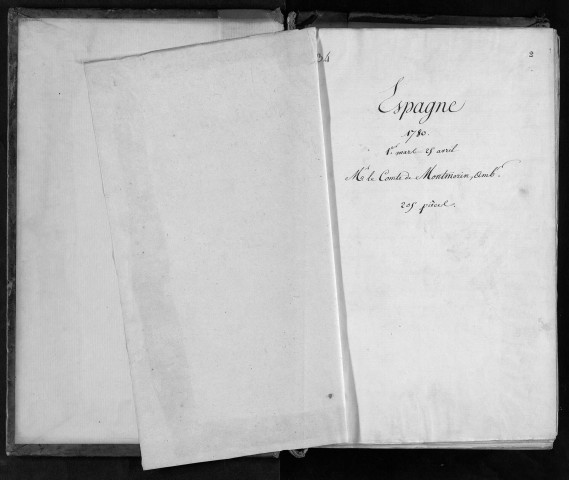 34
2
Espagne
1780.
1er mars 25 avril
Mr. le Comte de Montmorin, Ambr.
205 pièces.